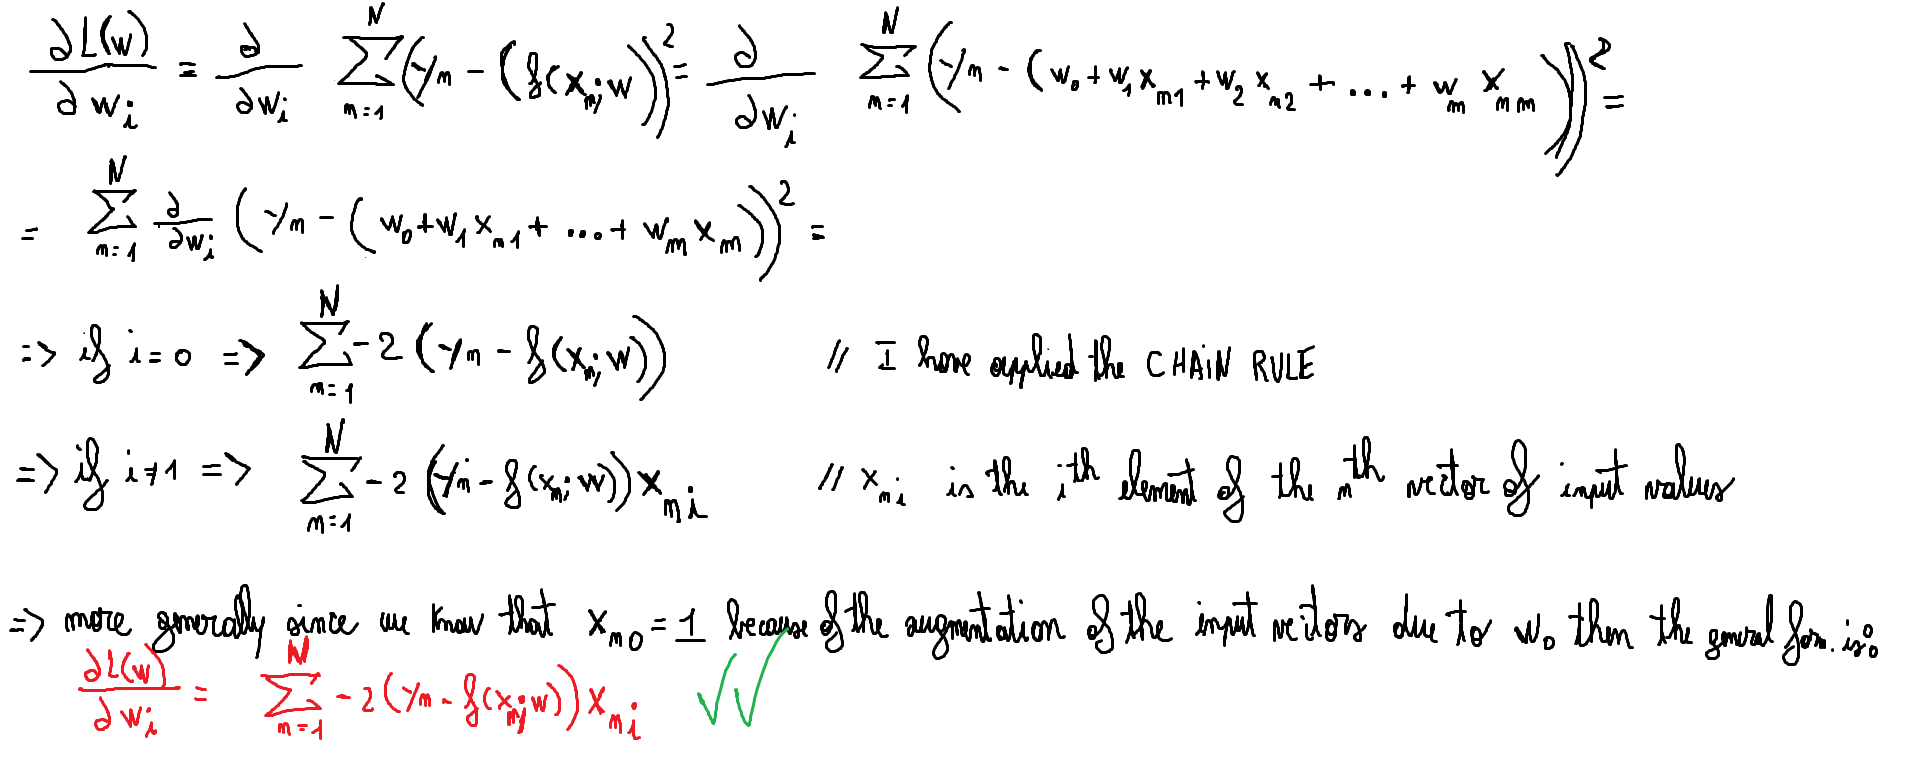 ∂L(w)/∂w_i = ∂/∂w_i ∑_{n=1}^{N} (y_n - (f(x_n; w))^2 = ∂/∂w_i ∑_{n=1}^{N} (y_n - (w_0 + w_1 x_{n1} + w_2 x_{n2} + ... + w_m x_{nm}))^2 =
= ∑_{n=1}^{N} ∂/∂w_i (y_n - (w_0 + w_1 x_{n1} + ... + w_m x_m))^2 =
=> if i=0 => ∑_{n=1}^{N} -2 (y_n - f(x_n; w)) // I have applied the CHAIN RULE
=> if i≠1 => ∑_{n=1}^{N} -2 (y_n - f(x_n; w)) x_{ni} // x_{ni} is the i^th element of the n^th vector of input values
=> more generally since we know that x_{n0} = 1 because of the augmentation of the input vectors due to w_0 then the general form. is:
∂L(w)/∂w_i = ∑_{n=1}^{N} -2 (y_n - f(x_n; w)) x_{ni}